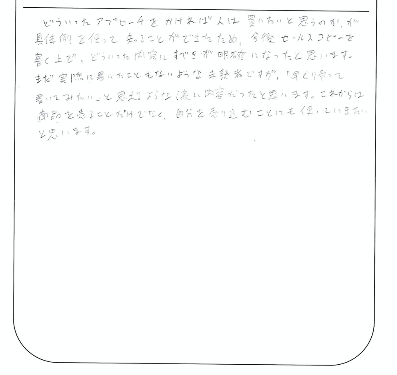 どういったアプローチをかければ人は買いたいと思うのか、が
具体例を使って知ることができたため、今後セールスコピーを
書く上で、どういった内容にすべきか明確になったと思います。
まだ実際に書いたこともないような未熟者ですが、「早く帰って
書いてみたい」と思えるような濃い内容だったと思います。これからは
商品を売ることだけでなく、自分を売り込むことにも使っていきたい
と思います。